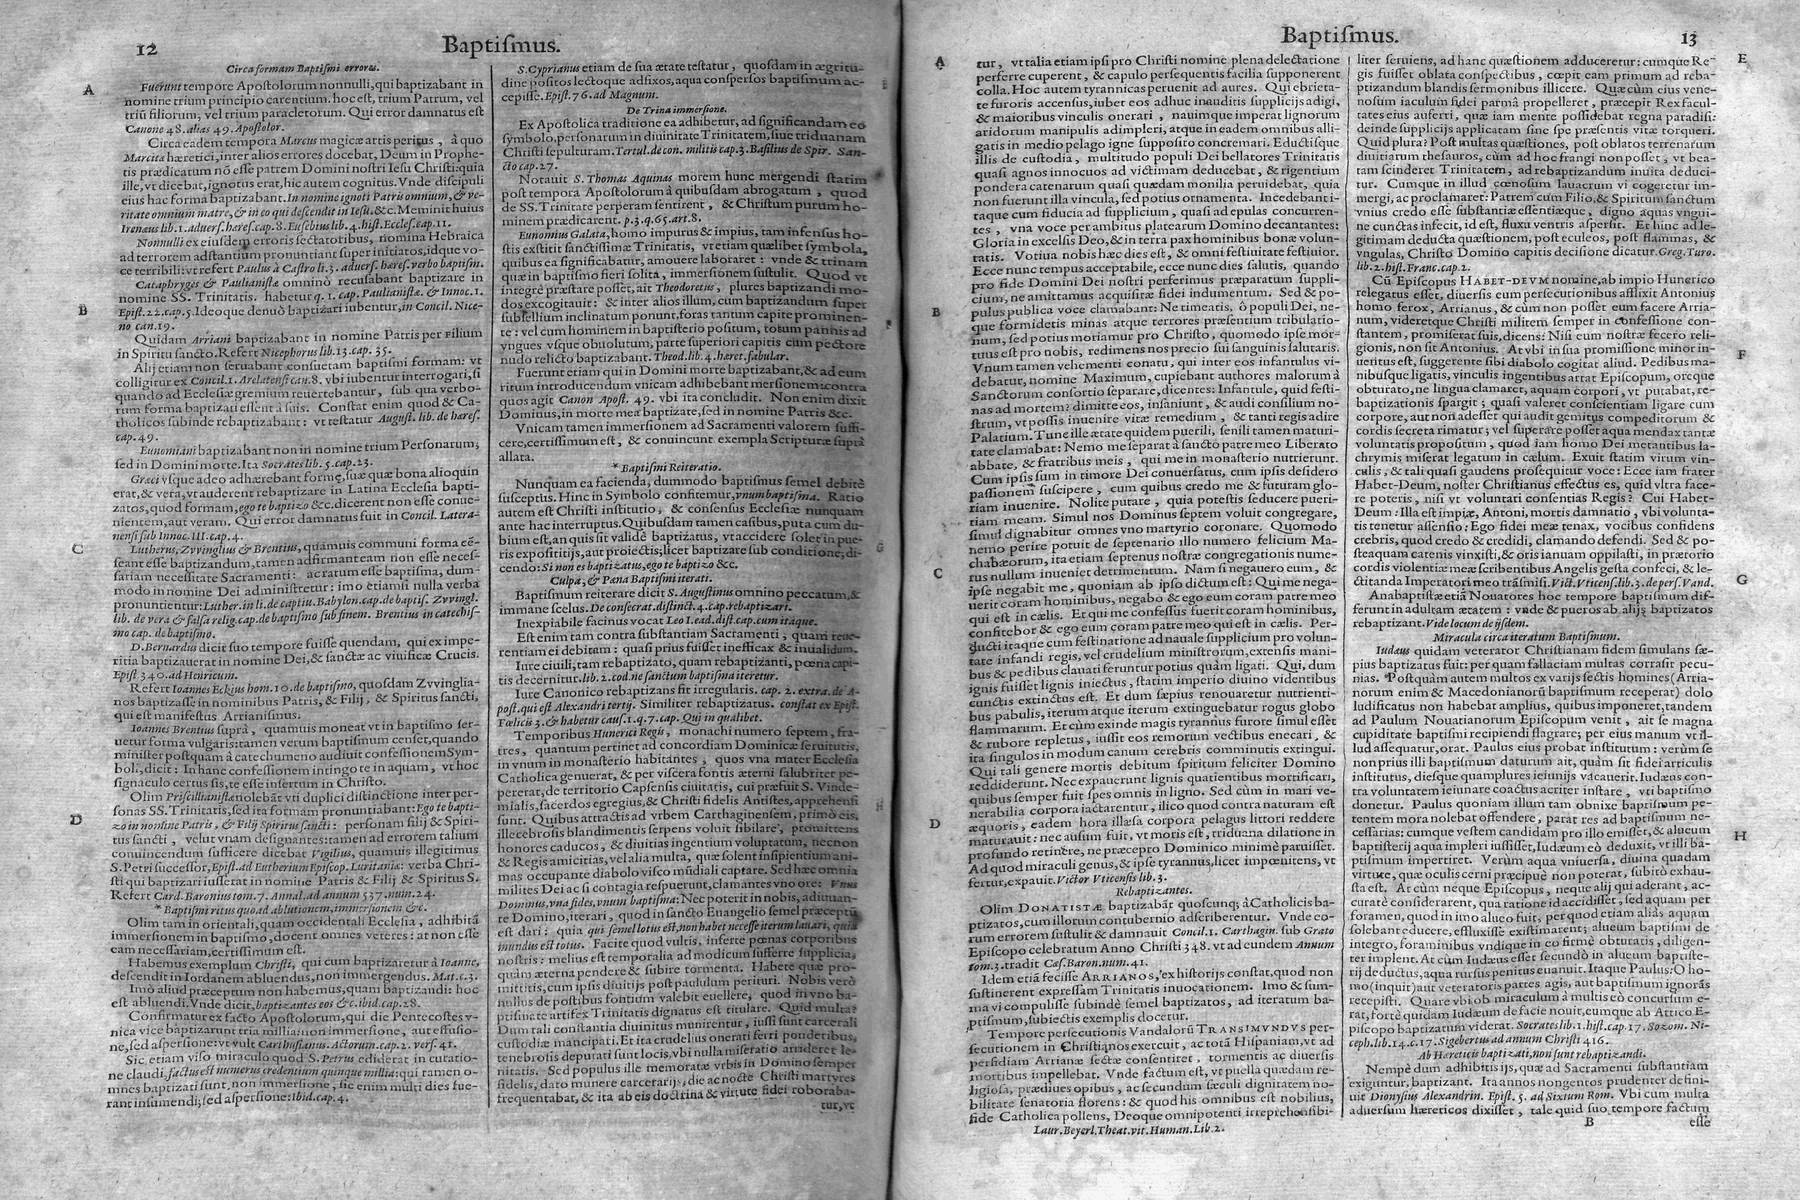 12
Baptiſmus.
Circa formam Baptiſmi errores.
A
Fuerunt tempore Apoſtolorum nonnulli, qui baptizabant in
nomine trium principio carentium. hoc eſt, trium Patrum, vel
triū filiorum, vel trium paracletorum. Qui error damnatus eſt
Canone 48. alias 49. Apoſtolor.
Circa eadem tempora Marcus magicæ artis peritus, à quo
Marcitæ hæretici, inter alios errores docebat, Deum in Prophe-
tis prædicatum nō eſſe patrem Domini noſtri Ieſu Chriſti: quia
ille, vt dicebat, ignotus erat, hic autem cognitus. Vnde diſcipuli
eius hac forma baptizabant. In nomine ignoti Patris omnium, & ve-
ritate omnium matre, & in eo qui deſcendit in Ieſu. &c. Meminit huius
Irenæus lib. 1. aduerſ. hæreſ. cap. 8. Euſebius lib. 4. hiſt. Eccleſ. cap. 11.
Nonnulli ex eiuſdem erroris ſectatoribus, nomina Hebraica
ad terrorem adſtantium pronuntiant ſuper initiatos, idque vo-
ce terribili: vt refert Paulus à Caſtro li. 3. aduerſ. hæreſ. verbo baptiſm.
Cataphryges & Paulianiſtæ omninò recuſabant baptizare in
nomine SS. Trinitatis. habetur q. 1. cap. Paulianiſtæ. & Innoc. 1.
B
Epiſt. 22. cap. 5. Ideoque denuò baptizari iubentur, in Concil. Nice-
no can. 19.
Quidam Arriani baptizabant in nomine Patris per Filium
in Spiritu ſancto. Refert Nicephorus lib. 13. cap. 35.
Alij etiam non ſeruabant conſuetam baptiſmi formam: vt
colligitur ex Concil. 1. Arelatenſi can. 8. vbi iubentur interrogari, ſi
quando ad Eccleſiæ gremium reuertebantur, ſub qua verbo-
rum forma baptizati eſſent à ſuis. Conſtat enim quod & Ca-
tholicos ſubinde rebaptizabant: vt teſtatur Auguſt. lib. de hæreſ.
cap. 49.
Eunomiani baptizabant non in nomine trium Perſonarum;
ſed in Domini morte. Ita Socrates lib. 5. cap. 23.
Græci vſque adeo adhærebant formæ, ſuæ quæ bona alioquin
erat, & vera, vt auderent rebaptizare in Latina Eccleſia bapti-
zatos, quod formam, ego te baptizo &c. dicerent non eſſe conue-
nientem, aut veram. Qui error damnatus fuit in Concil. Latera-
nenſi ſub Innoc. III. cap. 4.
C
Lutherus, Zvvinglius & Brentius, quamuis communi forma cē-
ſeant eſſe baptizandum, tamen adfirmant eam non eſſe neceſ-
ſariam neceſſitate Sacramenti: ac ratum eſſe baptiſma, dum-
modo in nomine Dei adminiſtretur: imo etiamſi nulla verba
pronuntientur: Luther. in li. de captiu. Babylon. cap. de baptiſ. Zvvingl.
lib. de vera & falſa relig. cap. de baptiſmo ſub finem. Brentius in catechiſ-
mo cap. de baptiſmo.
D. Bernardus dicit ſuo tempore fuiſſe quendam, qui ex impe-
ritia baptizauerat in nomine Dei, & ſanctæ ac viuificæ Crucis.
Epiſt 340. ad Henricum.
Refert Ioannes Eckius hom. 10. de baptiſmo, quoſdam Zvvinglia-
nos baptizaſſe in nominibus Patris, & Filij, & Spiritus ſancti,
qui eſt manifeſtus Arrianiſmus.
Ioannes Brentius ſuprà, quamuis moneat vt in baptiſmo ſer-
uetur forma vulgaris: tamen verum baptiſmum cenſet, quando
miniſter poſtquam à catechumeno audiuit confeſſionem Sym-
boli, dicit: In hanc confeſſionem intingo te in aquam, vt hoc
ſignaculo certus ſis, te eſſe inſertum in Chriſto.
Olim Priſcillianiſtæ nolebāt vti duplici diſtinctione inter per-
ſonas SS. Trinitatis, ſed ita formam pronuntiabant: Ego te bapti-
D
zo in nomine Patris, & Filij Spiritus ſancti: perſonam filij & Spiri-
tus ſancti, velut vnam deſignantes: tamen ad errorem talium
conuincendum ſufficere dicebat Vigilius, quamuis illegitimus
S. Petri ſucceſſor, Epiſt. ad Eutherium Epiſcop. Luritania: verba Chri-
ſti qui baptizari iuſſerat in nomine Patris & Filij & Spiritus S.
Refert Card. Baronius tom. 7. Annal. ad annum 537. num. 24.
* Baptiſmi ritus quo ad ablutionem, immerſionem &c.
Olim tam in orientali, quam occidentali Eccleſia, adhibitā
immerſionem in baptiſmo, docent omnes veteres: at non eſſe
eam neceſſariam, certiſſimum eſt.
Habemus exemplum Chriſti, qui cum baptizaretur à Ioanne,
deſcendit in Iordanem abluendus, non immergendus. Mat. c. 3.
Imò aliud præceptum non habemus, quam baptizandi: hoc
eſt abluendi. Vnde dicit, baptizantes eos &c. ibid. cap. 28.
Confirmatur ex facto Apoſtolorum, qui die Pentecoſtes v-
nica vice baptizarunt tria millia: non immerſione, aut effuſio-
ne, ſed aſperſione: vt vult Carthuſianus. Actorum. cap. 2. verſ. 41.
Sic etiam viſo miraculo quod S. Petrus ediderat in curatio-
ne claudi, factus eſt numerus credentium quinque millia: qui tamen o-
mnes baptizati ſunt, non immerſione, ſic enim multi dies fue-
rant inſumendi; ſed aſperſione: ibid. cap. 4.
S. Cyprianus etiam de ſua ætate teſtatur, quoſdam in ægritu-
dine poſitos lectoque adfixos, aqua conſperſos baptiſmum ac-
cepiſſe. Epiſt. 76. ad Magnum.
De Trina immerſione.
Ex Apoſtolica traditione ea adhibetur, ad ſignificandam eo
ſymbolo, perſonarum in diuinitate Trinitatem, ſiue triduanam
Chriſti ſepulturam. Tertul. de con. militis cap. 3. Baſilius de Spir. San-
cto cap. 27.
Notauit S. Thomas Aquinas morem hunc mergendi ſtatim
poſt tempora Apoſtolorum à quibuſdam abrogatum, quod
de SS. Trinitate perperam ſentirent, & Chriſtum purum ho-
minem prædicarent. p. 3. q. 65. art. 8.
Eunomius Galata, homo impurus & impius, tam infenſus ho-
ſtis exſtitit ſanctiſſimæ Trinitatis, vt etiam quælibet ſymbola,
quibus ea ſignificabatur, amouere laboraret: vnde & trinam
quæ in baptiſmo fieri ſolita, immerſionem ſuſtulit. Quod vt
integrè præſtare poſſet, ait Theodoretus, plures baptizandi mo-
dos excogitauit: & inter alios illum, cum baptizandum ſuper
ſubſellium inclinatum ponunt, foras tantum capite prominen-
te: vel cum hominem in baptiſterio poſitum, totum pannis ad
vngues vſque obuolutum, parte ſuperiori capitis cum pectore
nudo relicto baptizabant. Theod. lib. 4. hæret. fabular.
Fuerunt etiam qui in Domini morte baptizabant, & ad eum
ritum introducendum vnicam adhibebant merſionem: contra
quos agit Canon Apoſt. 49. vbi ita concludit. Non enim dixit
Dominus, in morte mea baptizate, ſed in nomine Patris &c.
Vnicam tamen immerſionem ad Sacramenti valorem ſuffi-
cere, certiſſimum eſt, & conuincunt exempla Scripturæ ſuprà
allata.
* Baptiſmi Reiteratio.
Nunquam ea facienda, dummodo baptiſmus ſemel debitè
ſuſceptus. Hinc in Symbolo confitemur, vnum baptiſma. Ratio
autem eſt Chriſti inſtitutio, & conſenſus Eccleſiæ nunquam
ante hac interruptus. Quibuſdam tamen caſibus, puta cum du-
bium eſt, an quis ſit validè baptizatus, vt accidere ſolet in pue-
ris expoſititijs, aut proiectis; licet baptizare ſub conditione, di-
cendo: Si non es baptizatus, ego te baptizo &c.
Culpa, & Pœna Baptiſmi iterati.
Baptiſmum reiterare dicit S. Auguſtinus omnino peccatum, &
immane ſcelus. De conſecrat. diſtinct. 4. cap. rebaptizari.
Inexpiabile facinus vocat Leo I. ead. diſt. cap. cum itaque.
Eſt enim tam contra ſubſtantiam Sacramenti, quam reue-
rentiam ei debitam: quaſi prius fuiſſet inefficax & inualidum.
Iure ciuili, tam rebaptizato, quam rebaptizanti, pœna capi-
tis decernitur. lib. 2. cod. ne ſanctum baptiſma iteretur.
Iure Canonico rebaptizans fit irregularis. cap. 2. extra. de A-
poſt. qui eſt Alexandri tertij. Similiter rebaptizatus. conſtat ex Epiſt.
Fœlicis 3. & habetur cauſ. 1. q. 7. cap. Qui in qualibet.
Temporibus Hunerici Regis, monachi numero ſeptem, fra-
tres, quantum pertinet ad concordiam Dominicæ ſeruitutis,
in vnum in monaſterio habitantes, quos vna mater Eccleſia
Catholica genuerat, & per viſcera fontis æterni ſalubriter pe-
pererat, de territorio Capſenſis ciuitatis, cui præfuit S. Vinde-
mialis, ſacerdos egregius, & Chriſti fidelis Antiſtes, apprehenſi
ſunt. Quibus attractis ad vrbem Carthaginenſem, primò eis,
illecebroſis blandimentis ſerpens voluit ſibilare, promittens
honores caducos, & diuitias ingentium voluptatum, necnon
& Regis amicitias, vel alia multa, quæ ſolent inſipientium ani-
mas occupante diabolo viſco mūdiali captare. Sed hæc omnia
milites Dei ac ſi contagia reſpuerunt, clamantes vno ore: Vnus
Dominus, vna fides, vnum baptiſma: Nec poterit in nobis, adiuuan-
te Domino, iterari, quod in ſancto Euangelio ſemel præceptū
eſt dari: quia qui ſemel lotus eſt, non habet neceſſe iterum lauari, quia
mundus eſt totus. Facite quod vultis, inferte pœnas corporibus
noſtris: melius eſt temporalia ad modicum ſufferre ſupplicia,
quàm æterna pendere & ſubire tormenta. Habete quæ pro-
mittitis, cum ipſis diuitijs poſt paululum perituri. Nobis verò
nullus de poſtibus frontium valebit euellere, quod in vno ba-
ptiſmate artifex Trinitatis dignatus eſt titulare. Quid multa?
Dum tali conſtantia diuinitus munirentur, iuſſi ſunt carcerali
cuſtodiæ mancipati. Et ita crudelius onerati ferri ponderibus,
tenebroſis deputati ſunt locis, vbi nulla miſeratio arrideret le-
nitatis. Sed populus ille memoratæ vrbis in Domino ſemper
fidelis, dato munere carcerarijs, die ac nocte Chriſti martyres
frequentabat, & ita ab eis doctrina & virtute fidei roboraba-
tur, vt
Baptiſmus.
13
A
tur, vt talia etiam ipſi pro Chriſti nomine plena delectatione
perferre cuperent, & capulo perſequentis facilia ſupponerent
colla. Hoc autem tyrannicas peruenit ad aures. Qui ebrieta-
te furoris accenſus, iubet eos adhuc inauditis ſupplicijs adigi,
& maioribus vinculis onerari, nauimque imperat lignorum
aridorum manipulis adimpleri, atque in eadem omnibus alli-
gatis in medio pelago igne ſuppoſito concremari. Eductiſque
illis de cuſtodia, multitudo populi Dei bellatores Trinitatis
quaſi agnos innocuos ad victimam deducebat, & rigentium
pondera catenarum quaſi quædam monilia peruidebat, quia
non fuerunt illa vincula, ſed potius ornamenta. Incedebant i-
taque cum fiducia ad ſupplicium, quaſi ad epulas concurren-
tes, vna voce per ambitus platearum Domino decantantes:
Gloria in excelſis Deo, & in terra pax hominibus bonæ volun-
tatis. Votiua nobis hæc dies eſt, & omni feſtiuitate feſtiuior.
Ecce nunc tempus acceptabile, ecce nunc dies ſalutis, quando
pro fide Domini Dei noſtri perferimus præparatum ſuppli-
cium, ne amittamus acquiſitæ fidei indumentum. Sed & po-
B
pulus publica voce clamabant: Ne timeatis, ô populi Dei, ne-
que formidetis minas atque terrores præſentium tribulatio-
num, ſed potius moriamur pro Chriſto, quomodo ipſe mor-
tuus eſt pro nobis, redimens nos precio ſui ſanguinis ſalutaris.
Vnum tamen vehementi conatu, qui inter eos infantulus vi-
debatur, nomine Maximum, cupiebant authores malorum à
Sanctorum conſortio ſeparare, dicentes: Infantule, quid feſti-
nas ad mortem? dimitte eos, inſaniunt, & audi conſilium no-
ſtrum, vt poſſis inuenire vitæ remedium, & tanti regis adire
Palatium. Tunc ille ætate quidem puerili, ſenili tamen maturi-
tate clamabat: Nemo me ſeparat à ſancto patre meo Liberato
abbate, & fratribus meis, qui me in monaſterio nutrierunt.
Cum ipſis ſum in timore Dei conuerſatus, cum ipſis deſidero
paſſionem ſuſcipere, cum quibus credo me & futuram glo-
riam inuenire. Nolite putare, quia poteſtis ſeducere pueri-
tiam meam. Simul nos Dominus ſeptem voluit congregare,
ſimul dignabitur omnes vno martyrio coronare. Quomodo
nemo perire potuit de ſeptenario illo numero felicium Ma-
chabæorum, ita etiam ſeptenus noſtræ congregationis nume-
C
rus nullum inueniet detrimentum. Nam ſi negauero eum, &
ipſe negabit me, quoniam ab ipſo dictum eſt: Qui me nega-
uerit coram hominibus, negabo & ego eum coram patre meo
qui eſt in cælis. Et qui me confeſſus fuerit coram hominibus,
confitebor & ego eum coram patre meo qui eſt in cælis. Per-
ducti itaque cum feſtinatione ad nauale ſupplicium pro volun-
tate infandi regis, vel crudelium miniſtrorum, extenſis mani-
bus & pedibus clauati feruntur potius quàm ligati. Qui, dum
ignis fuiſſet lignis iniectus, ſtatim imperio diuino videntibus
cunctis extinctus eſt. Et dum ſæpius renouaretur nutrienti-
bus pabulis, iterum atque iterum extinguebatur rogus globo
flammarum. Et cùm exinde magis tyrannus furore ſimul eſſet
& rubore repletus, iuſſit eos remorum vectibus enecari, &
ita ſingulos in modum canum cerebris comminutis extingui.
Qui tali genere mortis debitum ſpiritum feliciter Domino
reddiderunt. Nec expauerunt lignis quatientibus mortificari,
quibus ſemper fuit ſpes omnis in ligno. Sed cùm in mari ve-
nerabilia corpora iactarentur, ilico quod contra naturam eſt
D
æquoris, eadem hora illæſa corpora pelagus littori reddere
maturauit: nec auſum fuit, vt moris eſt, triduana dilatione in
profundo retinere, ne præcepto Dominico minimè paruiſſet.
Ad quod miraculi genus, & ipſe tyrannus, licet impœnitens, vt
fertur, expauit. Victor Vticenſis lib. 3.
Rebaptizantes.
Olim DONATISTÆ baptizabāt quoſcunq; à Catholicis ba-
ptizatos, cum illorum contubernio adſcriberentur. Vnde eo-
rum errorem ſuſtulit & damnauit Concil. 1. Carthagin. ſub Grato
Epiſcopo celebratum Anno Chriſti 348. vt ad eundem Annum
tom. 3. tradit Caſ. Baron. num. 41.
Idem etiā feciſſe ARRIANOS, ex hiſtorijs conſtat, quod non
ſuſtinerent expreſſam Trinitatis inuocationem. Imo & ſum-
ma vi compuliſſe ſubindè ſemel baptizatos, ad iteratum ba-
ptiſmum, ſubiectis exemplis docetur.
Tempore perſecutionis Vandalorū TRANSIMVNDVS per-
ſecutionem in Chriſtianos exercuit, ac totā Hiſpaniam, vt ad
perfidiam Arrianæ ſectæ conſentiret, tormentis ac diuerſis
mortibus impellebat. Vnde factum eſt, vt puella quædam re-
ligioſa, prædiues opibus, ac ſecundum ſæculi dignitatem no-
bilitate ſenatoria florens: & quod his omnibus eſt nobilius,
fide Catholica pollens, Deoque omnipotenti irreprehenſibi-
Laur. Beyerl. Theat. vit. Human. Lib. 2.
E
liter ſeruiens, ad hanc quæſtionem adduceretur: cumque Re-
gis fuiſſet oblata conſpectibus, cœpit eam primum ad reba-
ptizandum blandis ſermonibus illicere. Quæ cùm eius vene-
noſum iaculum fidei parmâ propelleret, præcepit Rex facul-
tates eius auferri, quæ iam mente poſſidebat regna paradiſi:
deinde ſupplicijs applicatam ſine ſpe præſentis vitæ torqueri.
Quid plura? Poſt multas quæſtiones, poſt oblatos terrenarum
diuitiarum theſauros, cùm ad hoc frangi non poſſet, vt bea-
tam ſcinderet Trinitatem, ad rebaptizandum inuita deduci-
tur. Cumque in illud cœnoſum lauacrum vi cogeretur im-
mergi, ac proclamaret: Patrem cum Filio, & Spiritum ſanctum
vnius credo eſſe ſubſtantiæ eſſentiæque, digno aquas vngui-
ne cunctas infecit, id eſt, fluxu ventris aſperſit. Et hinc ad le-
gitimam deducta quæſtionem, poſt eculeos, poſt flammas, &
vngulas, Chriſto Domino capitis deciſione dicatur. Greg. Turo.
lib. 2. hiſt. Franc. cap. 2.
Cū Epiſcopus HABET-DEVM nomine, ab impio Hunerico
relegatus eſſet, diuerſis eum perſecutionibus afflixit Antonius
homo ferox, Arrianus, & cùm non poſſet eum facere Arria-
num, videretque Chriſti militem ſemper in confeſſione con-
ſtantem, promiſerat ſuis, dicens: Niſi eum noſtræ fecero reli-
F
gionis, non ſit Antonius. At vbi in ſua promiſſione minor in-
uentus eſt, ſuggerente ſibi diabolo cogitat aliud. Pedibus ma-
nibuſque ligatis, vinculis ingentibus artat Epiſcopum, oreque
obturato, ne lingua clamaret, aquam corpori, vt putabat, re-
baptizationis ſpargit; quaſi valeret conſcientiam ligare cum
corpore, aut non adeſſet qui audit gemitus compeditorum &
cordis ſecreta rimatur; vel ſuperare poſſet aqua mendax tantæ
voluntatis propoſitum, quod iam homo Dei metantibus la-
chrymis miſerat legatum in cælum. Exuit ſtatim virum vin-
culis, & tali quaſi gaudens proſequitur voce: Ecce iam frater
Habet-Deum, noſter Chriſtianus effectus es, quid vltra face-
re poteris, niſi vt voluntati conſentias Regis? Cui Habet-
Deum: Illa eſt impiæ, Antoni, mortis damnatio, vbi volunta-
tis tenetur aſſenſio: Ego fidei meæ tenax, vocibus confidens
crebris, quod credo & credidi, clamando defendi. Sed & po-
ſteaquam catenis vinxiſti, & oris ianuam oppilaſti, in prætorio
cordis violentiæ meæ ſcribentibus Angelis geſta confeci, & le-
G
ctitanda Imperatori meo trāſmiſi. Vict. Vticenſ. lib. 3. de perſ. Vand.
Anabaptiſtæ etiā Nouatores hoc tempore baptiſmum dif-
ferunt in adultam ætatem: vnde & pueros ab alijs baptizatos
rebaptizant. Vide locum de ijſdem.
Miracula circa iteratum Baptiſmum.
Iudæus quidam veterator Chriſtianam fidem ſimulans ſæ-
pius baptizatus fuit: per quam fallaciam multas corraſit pecu-
nias. Poſtquàm autem multos ex varijs ſectis homines (Arria-
norum enim & Macedonianorū baptiſmum receperat) dolo
ludificatus non habebat amplius, quibus imponeret, tandem
ad Paulum Nouatianorum Epiſcopum venit, ait ſe magna
cupiditate baptiſmi recipiendi flagrare; per eius manum vt il-
lud aſſequatur, orat. Paulus eius probat inſtitutum: verùm ſe
non prius illi baptiſmum daturum ait, quàm ſit fidei articulis
inſtitutus, dieſque quamplures ieiunijs vacauerit. Iudæus con-
tra voluntatem ieiunare coactus acriter inſtare, vti baptiſmo
donetur. Paulus quoniam illum tam obnixe baptiſmum pe-
tentem mora nolebat offendere, parat res ad baptiſmum ne-
H
ceſſarias: cumque veſtem candidam pro illo emiſſet, & alueum
baptiſterij aqua impleri iuſſiſſet, Iudæum eò deduxit, vt illi ba-
ptiſmum impertiret. Verùm aqua vniuerſa, diuina quadam
virtute, quæ oculis cerni præcipuè non poterat, ſubitò exhau-
ſta eſt. At cùm neque Epiſcopus, neque alij qui aderant, ac-
curatè conſiderarent, qua ratione id accidiſſet, ſed aquam per
foramen, quod in imo alueo fuit, per quod etiam aliàs aquam
ſolebant educere, effluxiſſe exiſtimarent; alueum baptiſmi de
integro, foraminibus vndique in eo firmè obturatis, diligen-
ter implent. At cùm Iudæus eſſet ſecundò in alueum baptiſte-
rij deductus, aqua rurſus penitus euanuit. Itaque Paulus: O ho-
mo (inquit) aut veteratoris partes agis, aut baptiſmum ignorās
recepiſti. Quare vbi ob miraculum à multis eò concurſum e-
rat, fortè quidam Iudæum de facie nouit, eumque ab Attico E-
piſcopo baptizatum viderat. Socrates lib. 1. hiſt. cap. 17. Sozom. Ni-
ceph. lib. 14. c. 17. Sigebertus ad annum Chriſti 416.
Ab Hæreticis baptizati, non ſunt rebaptizandi.
Nempè dum adhibitis ijs, quæ ad Sacramenti ſubſtantiam
exiguntur, baptizant. Ita annos nongentos prudenter defini-
uit Dionyſius Alexandrin. Epiſt. 5. ad Sixtum Rom. Vbi cum multa
aduerſum hæreticos dixiſſet, tale quid ſuo tempore factum
B
eſſe